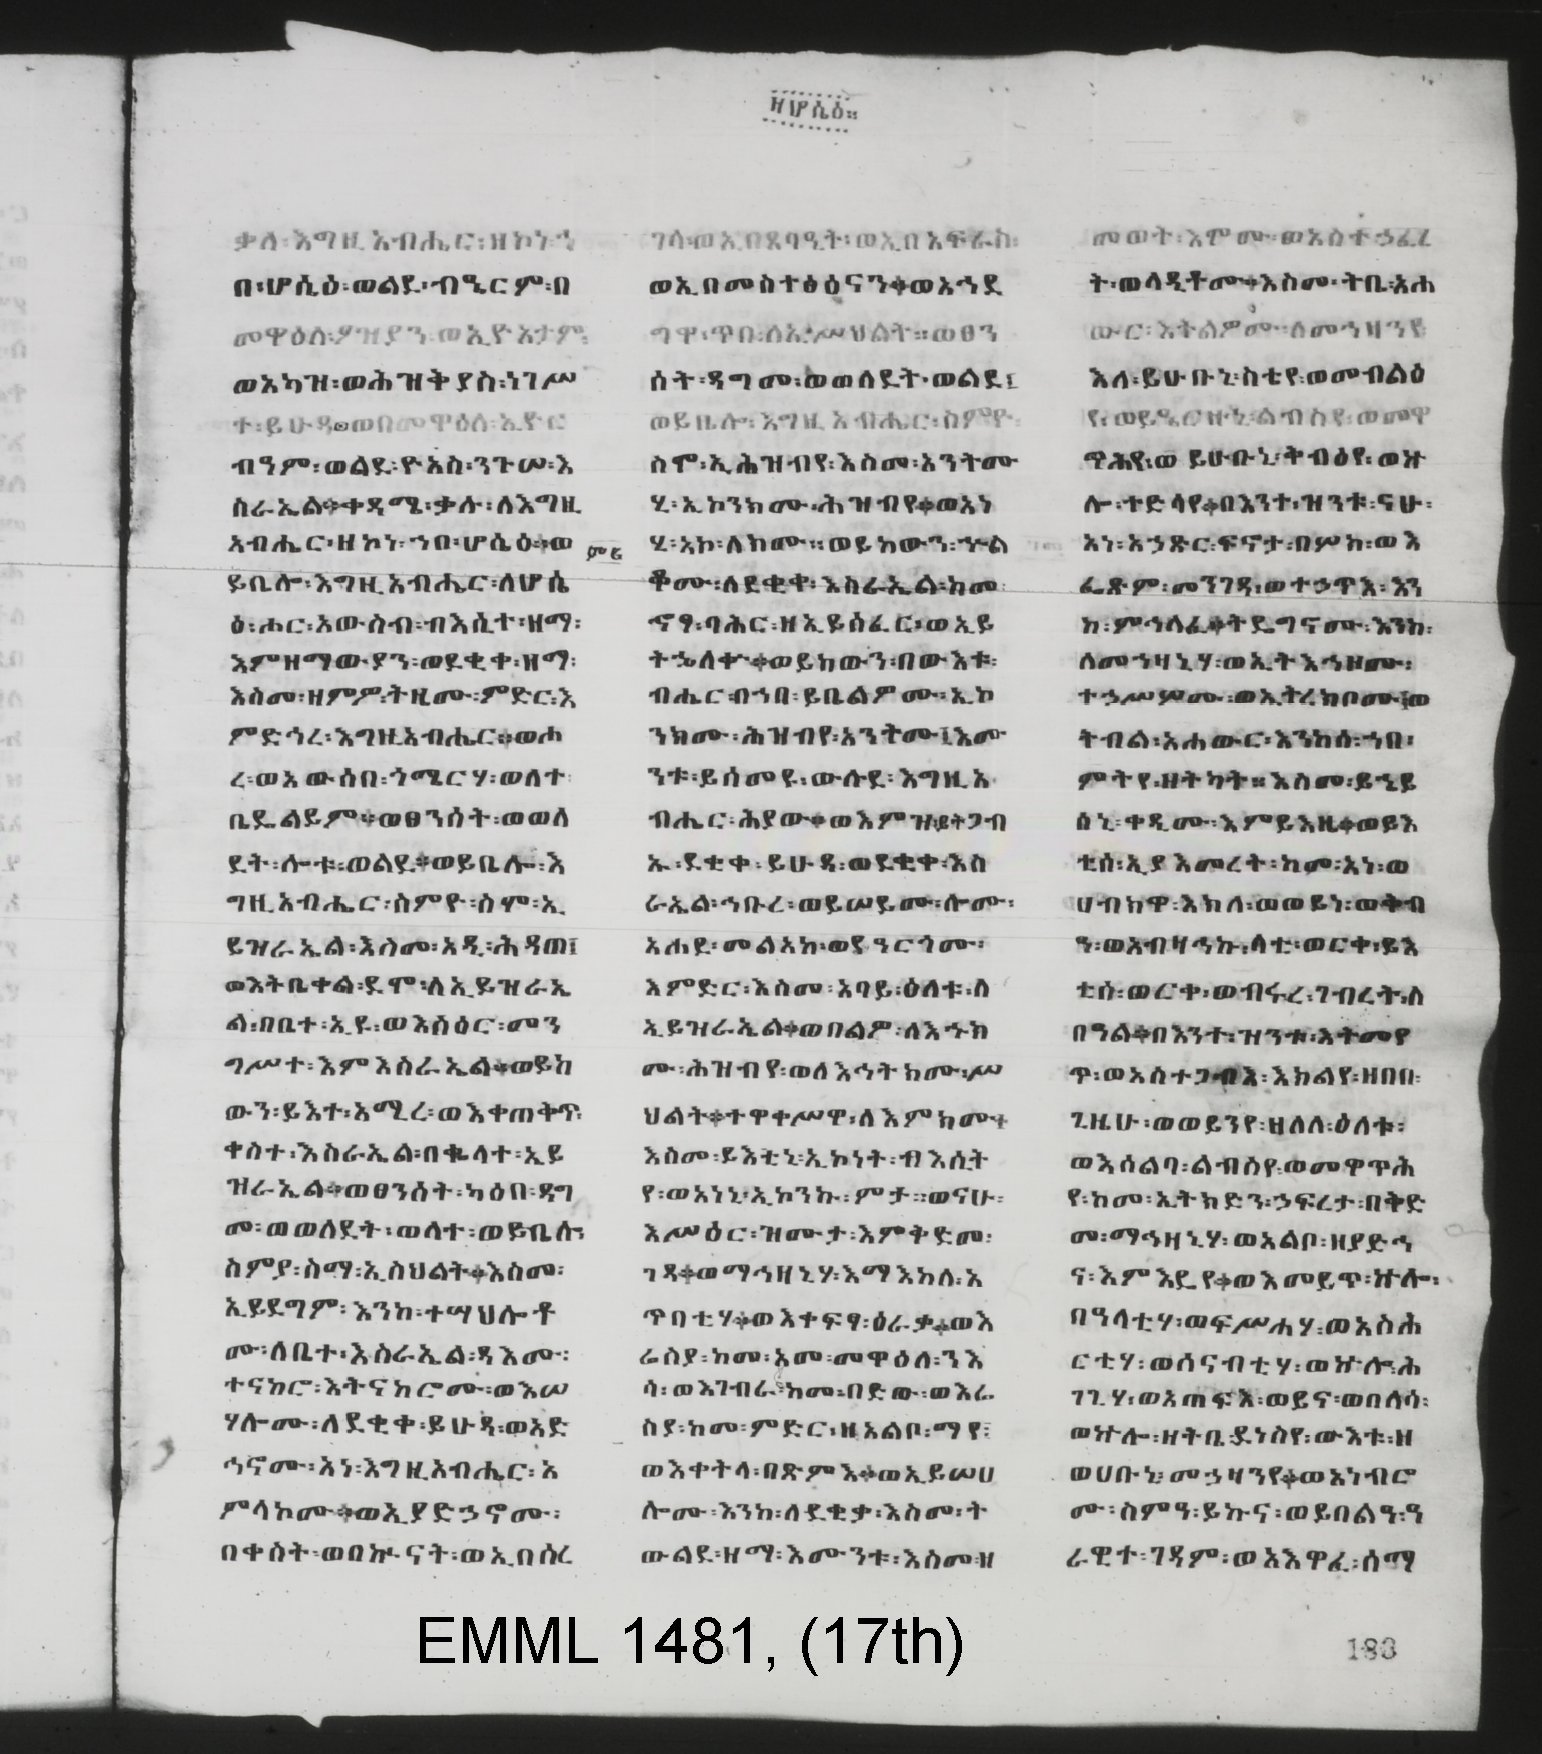 ዘሆሴዕ።
ቃለ፡እግዚአብሔር፡ዘኮነ፡ኀ
በ፡ሆሴዕ፡ወልደ፡ብዔርም፡በ
መዋዕለ፡ዖዝያን፡ወኢዮአታም፡
ወአካዝ፡ወሕዝቅያስ፡ነገሥ
ተ፡ይሁዳ፡ወበመዋዕለ፡ኢዮር
ብዓም፡ወልደ፡ዮአስ፡ንጉሠ፡እ
ስራኤል።ቀዳሜ፡ቃሉ፡ለእግዚ
አብሔር፡ዘኮነ፡ኀበ፡ሆሴዕ።ወ
ይቤሎ፡እግዚአብሔር፡ለሆሴ
ዕ፡ሖር፡አውስብ፡ብእሲተ፡ዘማ፡
እምዘማውያን፡ወደቂቀ፡ዘማ፡
እስመ፡ዘምዎ፡ትዚሙ፡ምድር፡እ
ምድኅረ፡እግዚአብሔር።ወሖ
ረ፡ወአውሰበ፡ጎሜርሃ፡ወለተ
ቤዴልይም።ወፀንሰት፡ወወለ
ደት፡ሎቱ፡ወልደ።ወይቤሎ፡እ
ግዚአብሔር፡ስምዮ፡ስሞ፡ኢ
ይዝራኤል፡እስመ፡አዲ፡ሕዳጠ፤
ወእትቤቀል፡ደሞ፡ለኢይዝራኤ
ል፡በቤተ፡ኢዩ፡ወእስዕር፡መን
ግሥተ፡እምእስራኤል።ወይከ
ውን፡ይእተ፡አሚረ፡ወእቀጠቅጥ፡
ቀስተ፡እስራኤል፡በቈላተ፡ኢይ
ዝራኤል።ወፀንሰት፡ካዕበ፡ዳግ
መ፡ወወለደት፡ወለተ፡ወይቤሎ፡
ስምያ፡ስማ፡ኢስህልት።እስመ፡
ኢይደግም፡እንከ፡ተሣህሎቶ
ሙ፡ለቤተ፡እስራኤል፡ዳእሙ፡
ተናክሮ፡እትናከሮሙ፡ወእሠ
ሃሎሙ፡ለደቂቀ፡ይሁዳ፡ወአድ
ኅኖሙ፡አነ፡እግዚአብሔር፡አ
ምላኮሙ።ወኢያድኃኖሙ፡
በቀስት፡ወበኵናት፡ወኢበሰረ
ገላ፡ወኢበጸባዒት፡ወኢበአፍራስ፡
ወኢበመስተፅዕናን።ወአኀደ
ግዋ፡ጥበ፡ለኢሥህልት።ወፀን
ሰት፡ዳግመ፡ወወለደት፡ወልደ፤
ወይቤሎ፡እግዚአብሔር፡ስምዮ፡
ስሞ፡ኢሕዝብየ፡እስመ፡አንትሙ
ሂ፡ኢኮንክሙ፡ሕዝብየ።ወአነ
ሂ፡አኮ፡ለክሙ።ወይከውን፡ኍል
ምዕ
ቆሙ፡ለደቂቀ፡እስራኤል፡ከመ
ኆፃ፡ባሕር፡ዘኢይሰፈር፡ወኢይ
ትኈለቍ።ወይከውን፡በውእቱ፡
ብሔር፡ብኀበ፡ይቤልዎሙ፡ኢኮ
ንክሙ፡ሕዝብየ፡አንትሙ፤እሙ
ንቱ፡ይሰመዩ፡ውሉደ፡እግዚአ
ብሔር፡ሕያው።ወእምዝ፡ይትጋብ
ኡ፡ደቂቀ፡ይሁዳ፡ወደቂቀ፡እስ
ራኤል፡ኅቡረ፡ወይሠይሙ፡ሎሙ፡
አሐደ፡መልአከ፡ወያዓርጎሙ፡
እምድር፡እስመ፡አባይ፡ዕለቱ፡ለ
ኢይዝራኤል።ወበልዎ፡ለእኁክ
ሙ፡ሕዝብየ፡ወለእኅትክሙ፡ሥ
ህልት።ተዋቀሥዋ፡ለእምክሙ።
እስመ፡ይእቲኒ፡ኢኮነት፡ብእሲት
የ፡ወአነኒ፡ኢኮንኩ፡ምታ።ወናሁ፡
እሥዕር፡ዝሙታ፡እምቅድመ፡
ገጻ።ወማኅዘኒሃ፡እማእከለ፡አ
ጥባቲሃ።ወእተፍፃ፡ዕራቃ።ወእ
ሬስያ፡ከመ፡አመ፡መዋዕለ፡ንእ
ሳ፡ወእገብራ፡ከመ፡በድው፡ወእሬ
ስያ፡ከመ፡ምድር፡ዘአልቦ፡ማየ፤
ወእቀትላ፡በጽምእ።ወኢይሠሀ
ሎሙ፡እንከ፡ለደቂቃ፡እስመ፡ት
ውልደ፡ዘማ፡እሙንቱ፡እስመ፡ዘ
መወት፡እሞሙ፡ወአስተኃፈረ
ት፡ወላዲቶሙ።እስመ፡ትቤ፡አሐ
ውር፡እትልዎሙ፡ለመኀዛንየ
እለ፡ይሁቡኒ፡ስቴየ፡ወመብልዕ
የ፡ወይዔርዙኒ፡ልብስየ፡ወመዋ
ጥሕየ፡ወይሁቡኒ፡ቅብዕየ፡ወኵ
ሎ፡ተድላየ።በእንተ፡ዝንቱ፡ናሁ፡
አነ፡አኃጽር፡ፍኖታ፡በምክ፡ወእ
ፌጽም፡መንገዳ፡ወተኃጥእ፡እን
ከ፡ምኅላፈ።ትዴግኖሙ፡እንከ፡
ለመኀዛኒሃ፡ወኢትእኅዞሙ፡
ተኃሥሦሙ፡ወኢትረክቦሙ፤ወ
ትብል፡አሐውር፡እንከሰ፡ኀበ፡
ምትየ፡ዘትካት።እስመ፡ይኄይ
ሰኒ፡ቀዲሙ፡እምይእዜ።ወይእ
ቲሰ፡ኢያእመረት፡ከመ፡አነ፡ወ
ሀብክዋ፡እክለ፡ወወይነ፡ወቅብ
ዓ፡ወአብዛኅኩ፡ላቲ፡ወርቀ፡ይእ
ቲሰ፡ወርቀ፡ወብሩረ፡ገብረት፡ለ
በዓል።በእንተ፡ዝንቱ፡እትመየ
ጥ፡ወአስተጋብእ፡እክልየ፡ዘበበ፡
ጊዜሁ፡ወወይንየ፡ዘለለ፡ዕለቱ፡
ወእሰልባ፡ልብስየ፡ወመዋጥሕ
የ፡ከመ፡ኢትክድን፡ኃፍረታ፡በቅድ
መ፡ማኅዛኒሃ፡ወአልቦ፡ዘያድኅ
ና፡እምእዴየ።ወእመይጥ፡ኵሎ፡
በዓላቲሃ፡ወፍሥሐሃ፡ወአስሕ
ርቲሃ፡ወሰናብቲሃ፡ወኵሎ፡ሕ
ገጊሃ፡ወአጠፍእ፡ወይና፡ወበለሳ፡
ወኵሎ፡ዘትቤ፡ደነስየ፡ውእቱ፡ዘ
ወሀቡኒ፡መኃዛንየ።ወአነብሮ
ሙ፡ስምዓ፡ይኩና፡ወይበልዓ፡ዓ
ራዊተ፡ገዳም፡ወአእዋፈ፡ሰማ
EMML 1481, (17th)
183